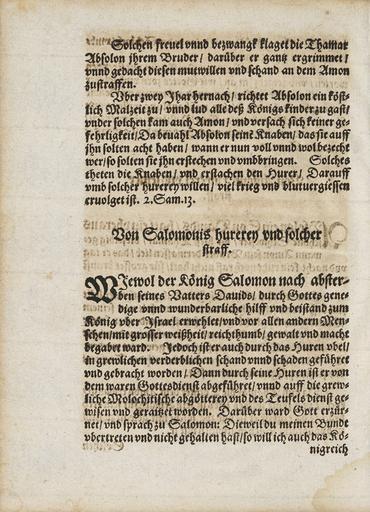 Solchen freuel vnnd bezwangk klaget die Thamar
Absolon jhrem Bruder/ darüber er gantz ergrimmet/
vnnd gedacht diesen mutwillen vnd schand an dem Amon
zustraffen.
Vber zwey Jhar hernach/ richtet Absolon ein köst-
lich Malzeit zu/ vnnd lud alle deß Königs kinder zu gast/
vnder solchen kam auch Amon/ vnd versach sich keiner ge-
fehrligkeit/ Da beuahl Absolon seine Knaben/ das sie auff
jhn solten acht haben/ wann er nun voll vnnd wol bezecht
wer/ so solten sie jhn erstechen vnd vmbbringen. Solches
theten die Knaben/ vnd erstachen den Hurer/ Darauff
vmb solcher hurerey willen/ viel krieg vnd blutuergiessen
eruolget ist. 2. Sam. 13.
Von Salomonis hurerey vnd solcher
straff.
WJewol der König Salomon nach abster-
ben seines Vatters Dauids/ durch Gottes gene-
dige vnnd wunderbarliche hilff vnd beistand zum
König vber Jsrael erwehlet/ vnd vor allen andern Men-
schen/ mit grosser weißheit/ reichthumb/ gewalt vnd macht
begabet ward. Jedoch ist er auch durch das Huren vbel/
in grewlichen verderblichen schand vnnd schaden geführet
vnd gebracht worden/ Dann durch seine Huren ist er von
dem waren Gottesdienst abgeführet/ vnnd auff die grew-
liche Molochitische abgötterey vnd des Teufels dienst ge-
wisen vnd geraitzet worden. Darüber ward Gott erzür-
net/ vnd sprach zu Salomon: Dieweil du meinen Bundt
vbertreten vnd nicht gehalten hast/ so will ich auch das Kö-
nigreich